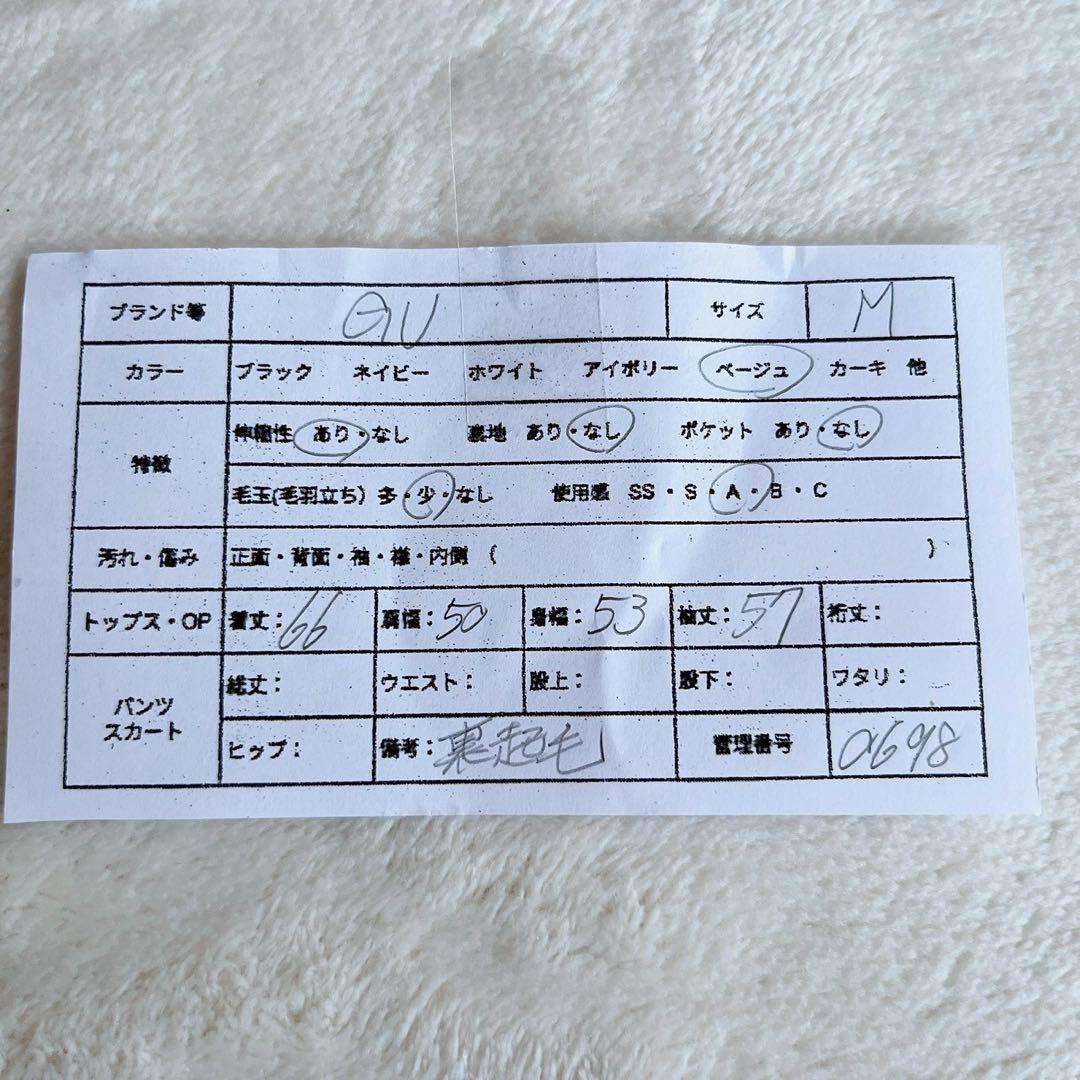 ブランド等 GU サイズ M
カラー ブラック ネイビー ホワイト アイボリー ベージュ カーキ 他
特徴
伸縮性 あり・なし 裏地 あり・なし ポケット あり・なし
毛玉(毛羽立ち) 多・少・なし 使用感 SS・S・A・B・C
汚れ・傷み 正面・背面・袖・襟・内側 ( )
トップス・OP 着丈：66 肩幅：50 身幅：53 袖丈：57 裄丈：
パンツ
スカート
総丈： ウエスト： 股上： 股下： ワタリ：
ヒップ： 備考：裏起毛 管理番号 a698